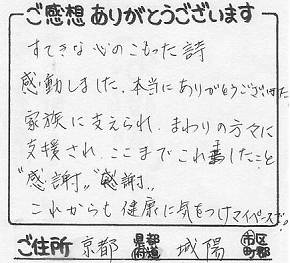 ご感想ありがとうございます
すてきな心のこもった詩
感動しました。本当にありがとうございました
家族に支えられ、まわりの方々に
支援され、ここまでこれましたこと
"感謝""感謝"
これからも健康に気をつけマイペースで。
ご住所 京都 都道府県 城陽 市区町郡